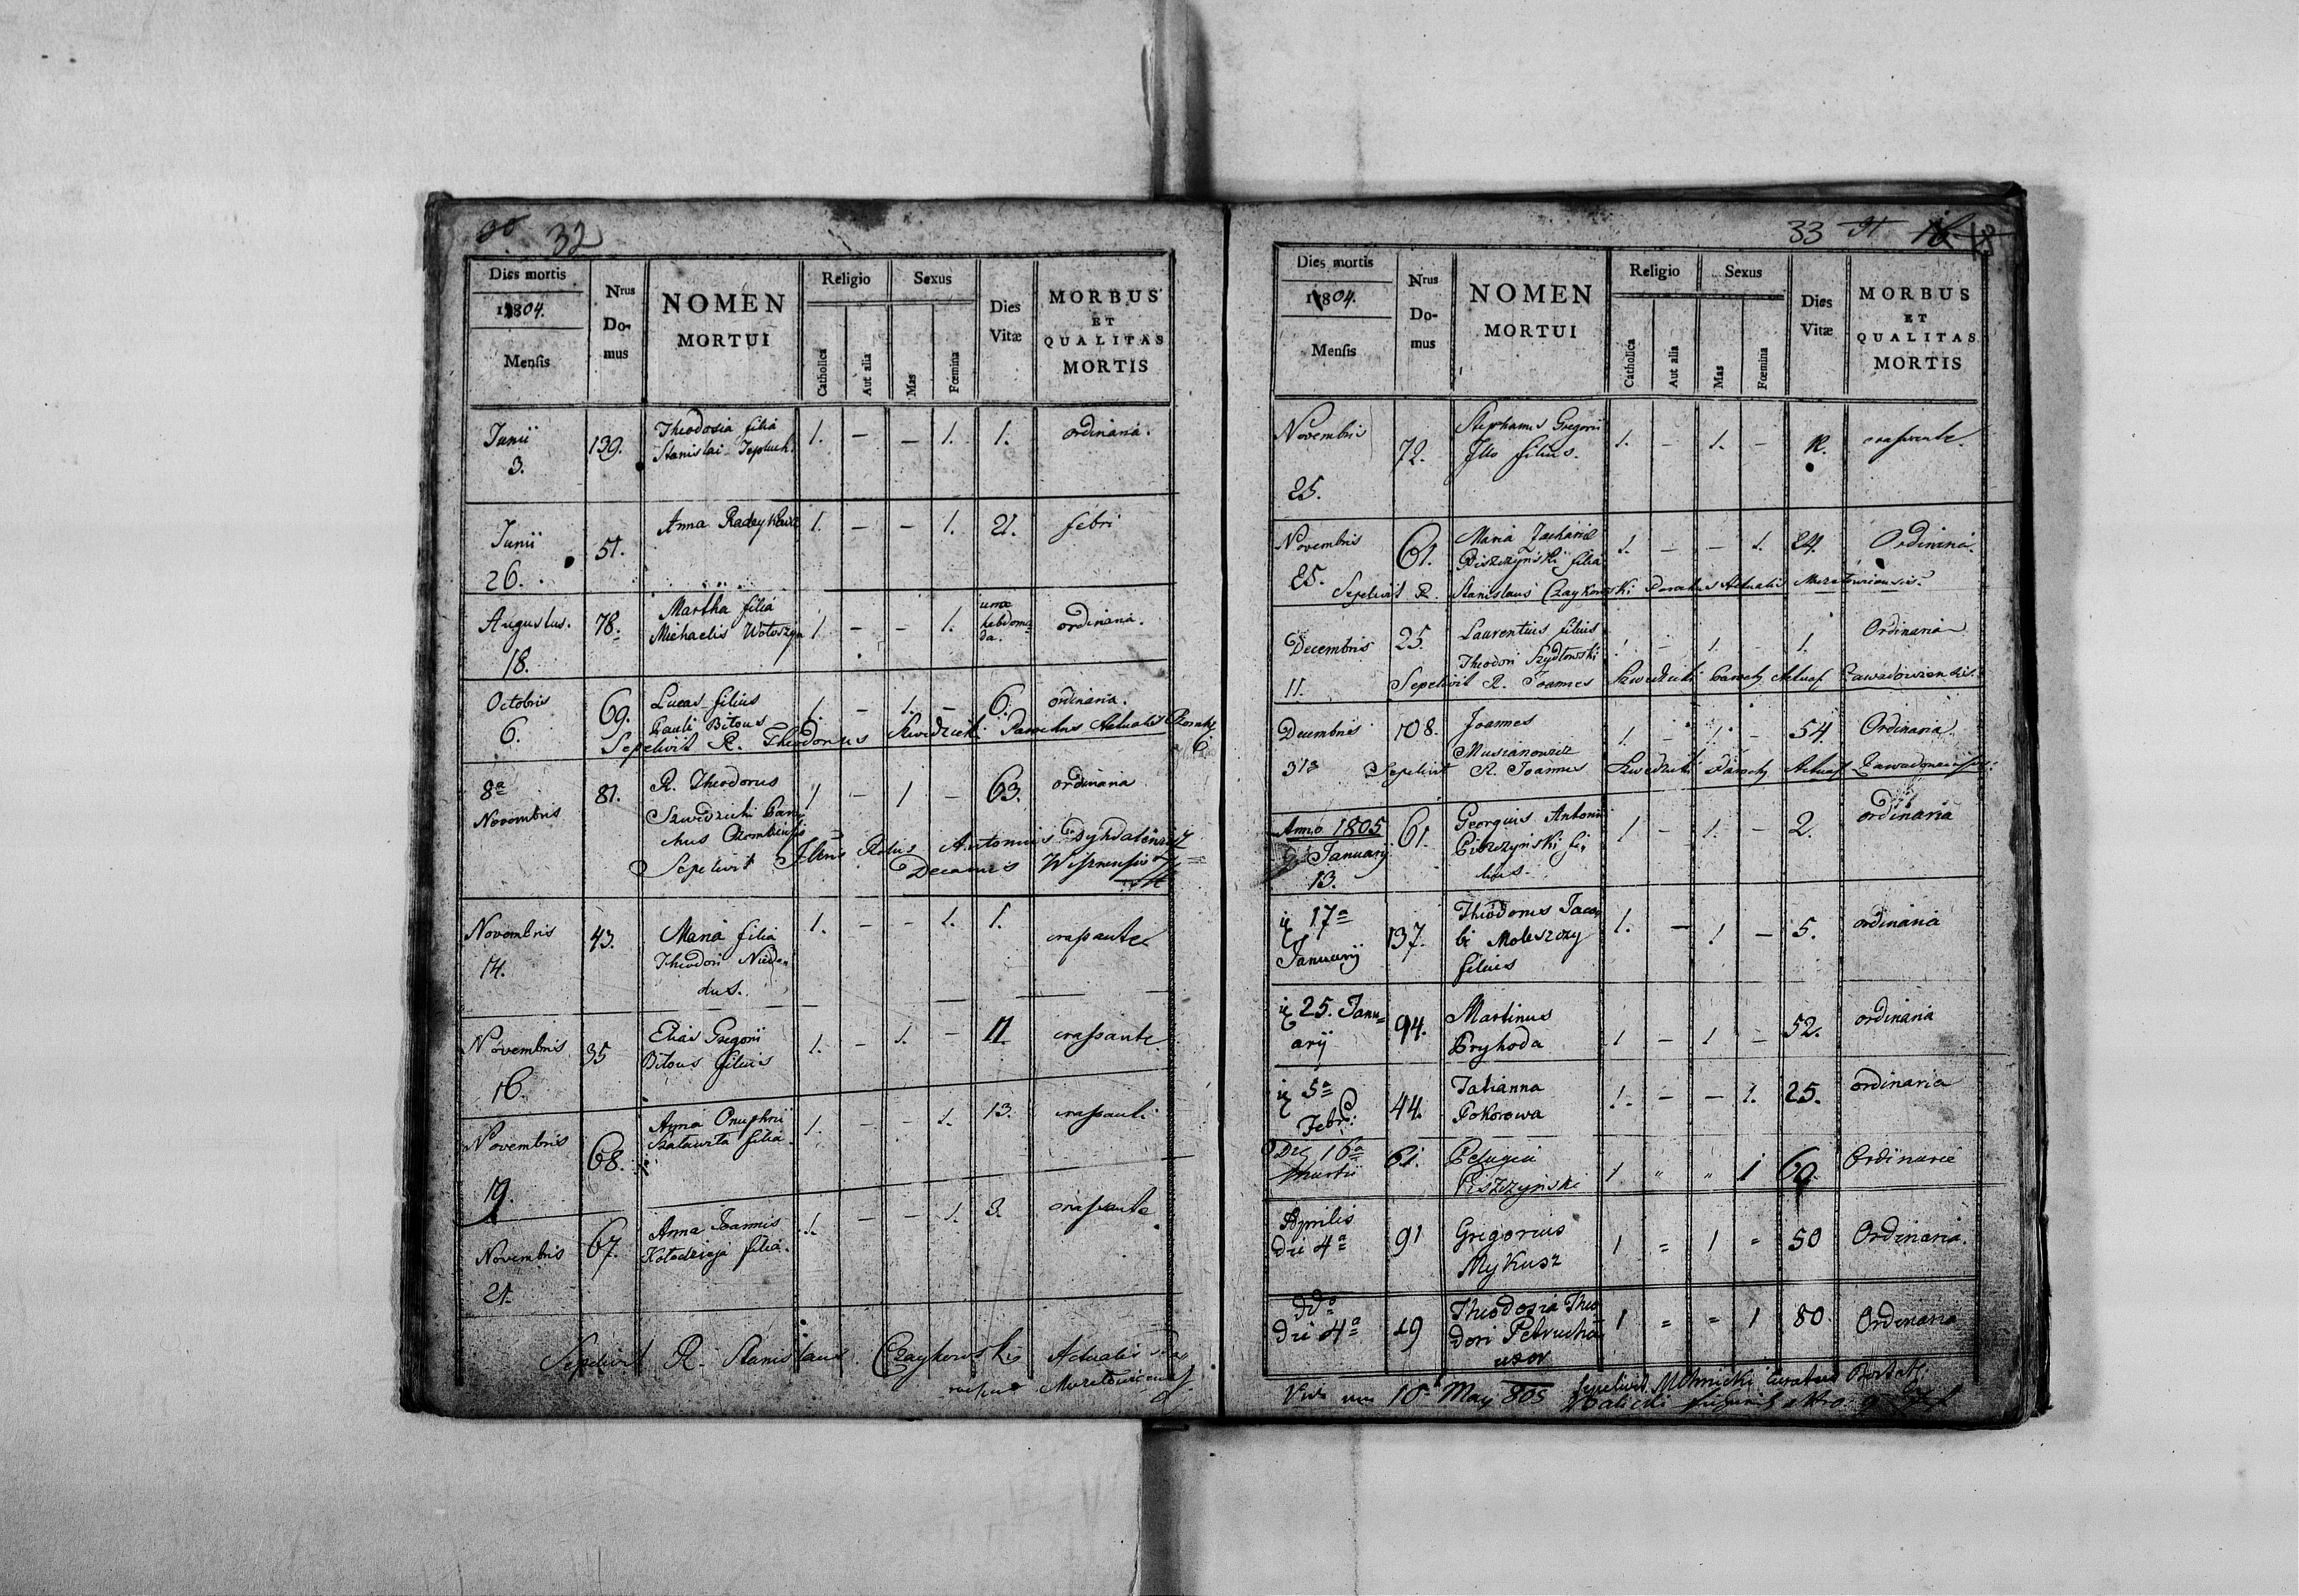 30 32
Dies mortis
1804.
Mensis
Nrus
Do-
mus
NOMEN
MORTUI
Religio
Catholica
Aut alia
Sexus
Mas
Fœmina
Dies
Vitæ
MORBUS
ET
QUALITAS
MORTIS
Junii 3. 139. Theodosia filia
Stanislai 1. — — 1. 1. ordinaria.
Junii 26. 51. Anna 1. — — 1. 21. febri
Augustus. 18. 78. Martha filia
Michaelis Wołoszyn 1. — — 1. unae
hebdoma
da. ordinaria.
Octobris 6. 69. Lucas filius
Pauli Bitous 1. — 1. — 6. ordinaria.
Sepelivit R. Theodorus Szwedzicki Parochus Actualis
8a
Novembris 81. R. Theodorus
Szwedzicki Paro
chus 1 — 1 — 63. ordinaria
Sepelivit Antonius
Decanus
Novembris
14. 43. Maria filia
Theodori
dus. 1. — — 1. 1. crassante
Novembris
16. 35 Elias Gregorii
Bitous filius 1. — 1. — 11. crassante
Novembris
19. 68. Anna Onuphrii
Szaławiła filia. 1. — — 1. 13. crassante
Novembris
21. 67. Anna Joannis
Kołodzieja filia. 1. — — 1. 3. crassante
Sepelivit R. Stanislaus Czaykowski Actualis
33 31
Dies mortis
1804.
Mensis
Nrus
Do-
mus
NOMEN
MORTUI
Religio
Catholica
Aut alia
Sexus
Mas
Fœmina
Dies
Vitæ
MORBUS
ET
QUALITAS
MORTIS
Novembris
25. 72. Stephanus Gregorii
filius. 1. — 1. — crassante.
Novembris
25. 61. Maria Zachariae
Piszczyński filia 1. — — 1. 24. Ordinaria.
Sepelivit R. Stanislaus Czaykowski Parochus Actualis
Decembris
11. 25. Laurentius filius
Theodori Szydłowski 1. — 1. — 1. Ordinaria
Sepelivit R. Joannes Szwedzicki Paroch
Decembris
31a 108. Joannes
Musianowicz 1. — 1. — 54 Ordinaria.
Sepelivit R. Joannes Szwedzicki Paroch
Anno 1805
January
13. 61. Georgius Antonii
Piszczyński fi-
lius. 1 — 1. — 2. ordinaria
17a
January 137. Theodorus Jaco
bi Moleszczy
filius 1. — 1 — 5. ordinaria
25. Janu=
arij 94. Martinus
Pryhoda 1 — 1 — 52. ordinaria
5a
Febr. 44. Tatianna
Pokorowa 1. — — 1. 25. ordinaria
Die 16a
Martii 61. Pelagia
Piszczyński 1 " " 1 60. Ordinarie
Aprilis
Die 4a 91 Gregorius
Mykusz 1 = 1 = 50 Ordinaria.
Die 4a 19 Theodosia Theo
dori Petrucha
uxor 1 = = 1 80 Ordinaria
10 May 805 Sepelivit